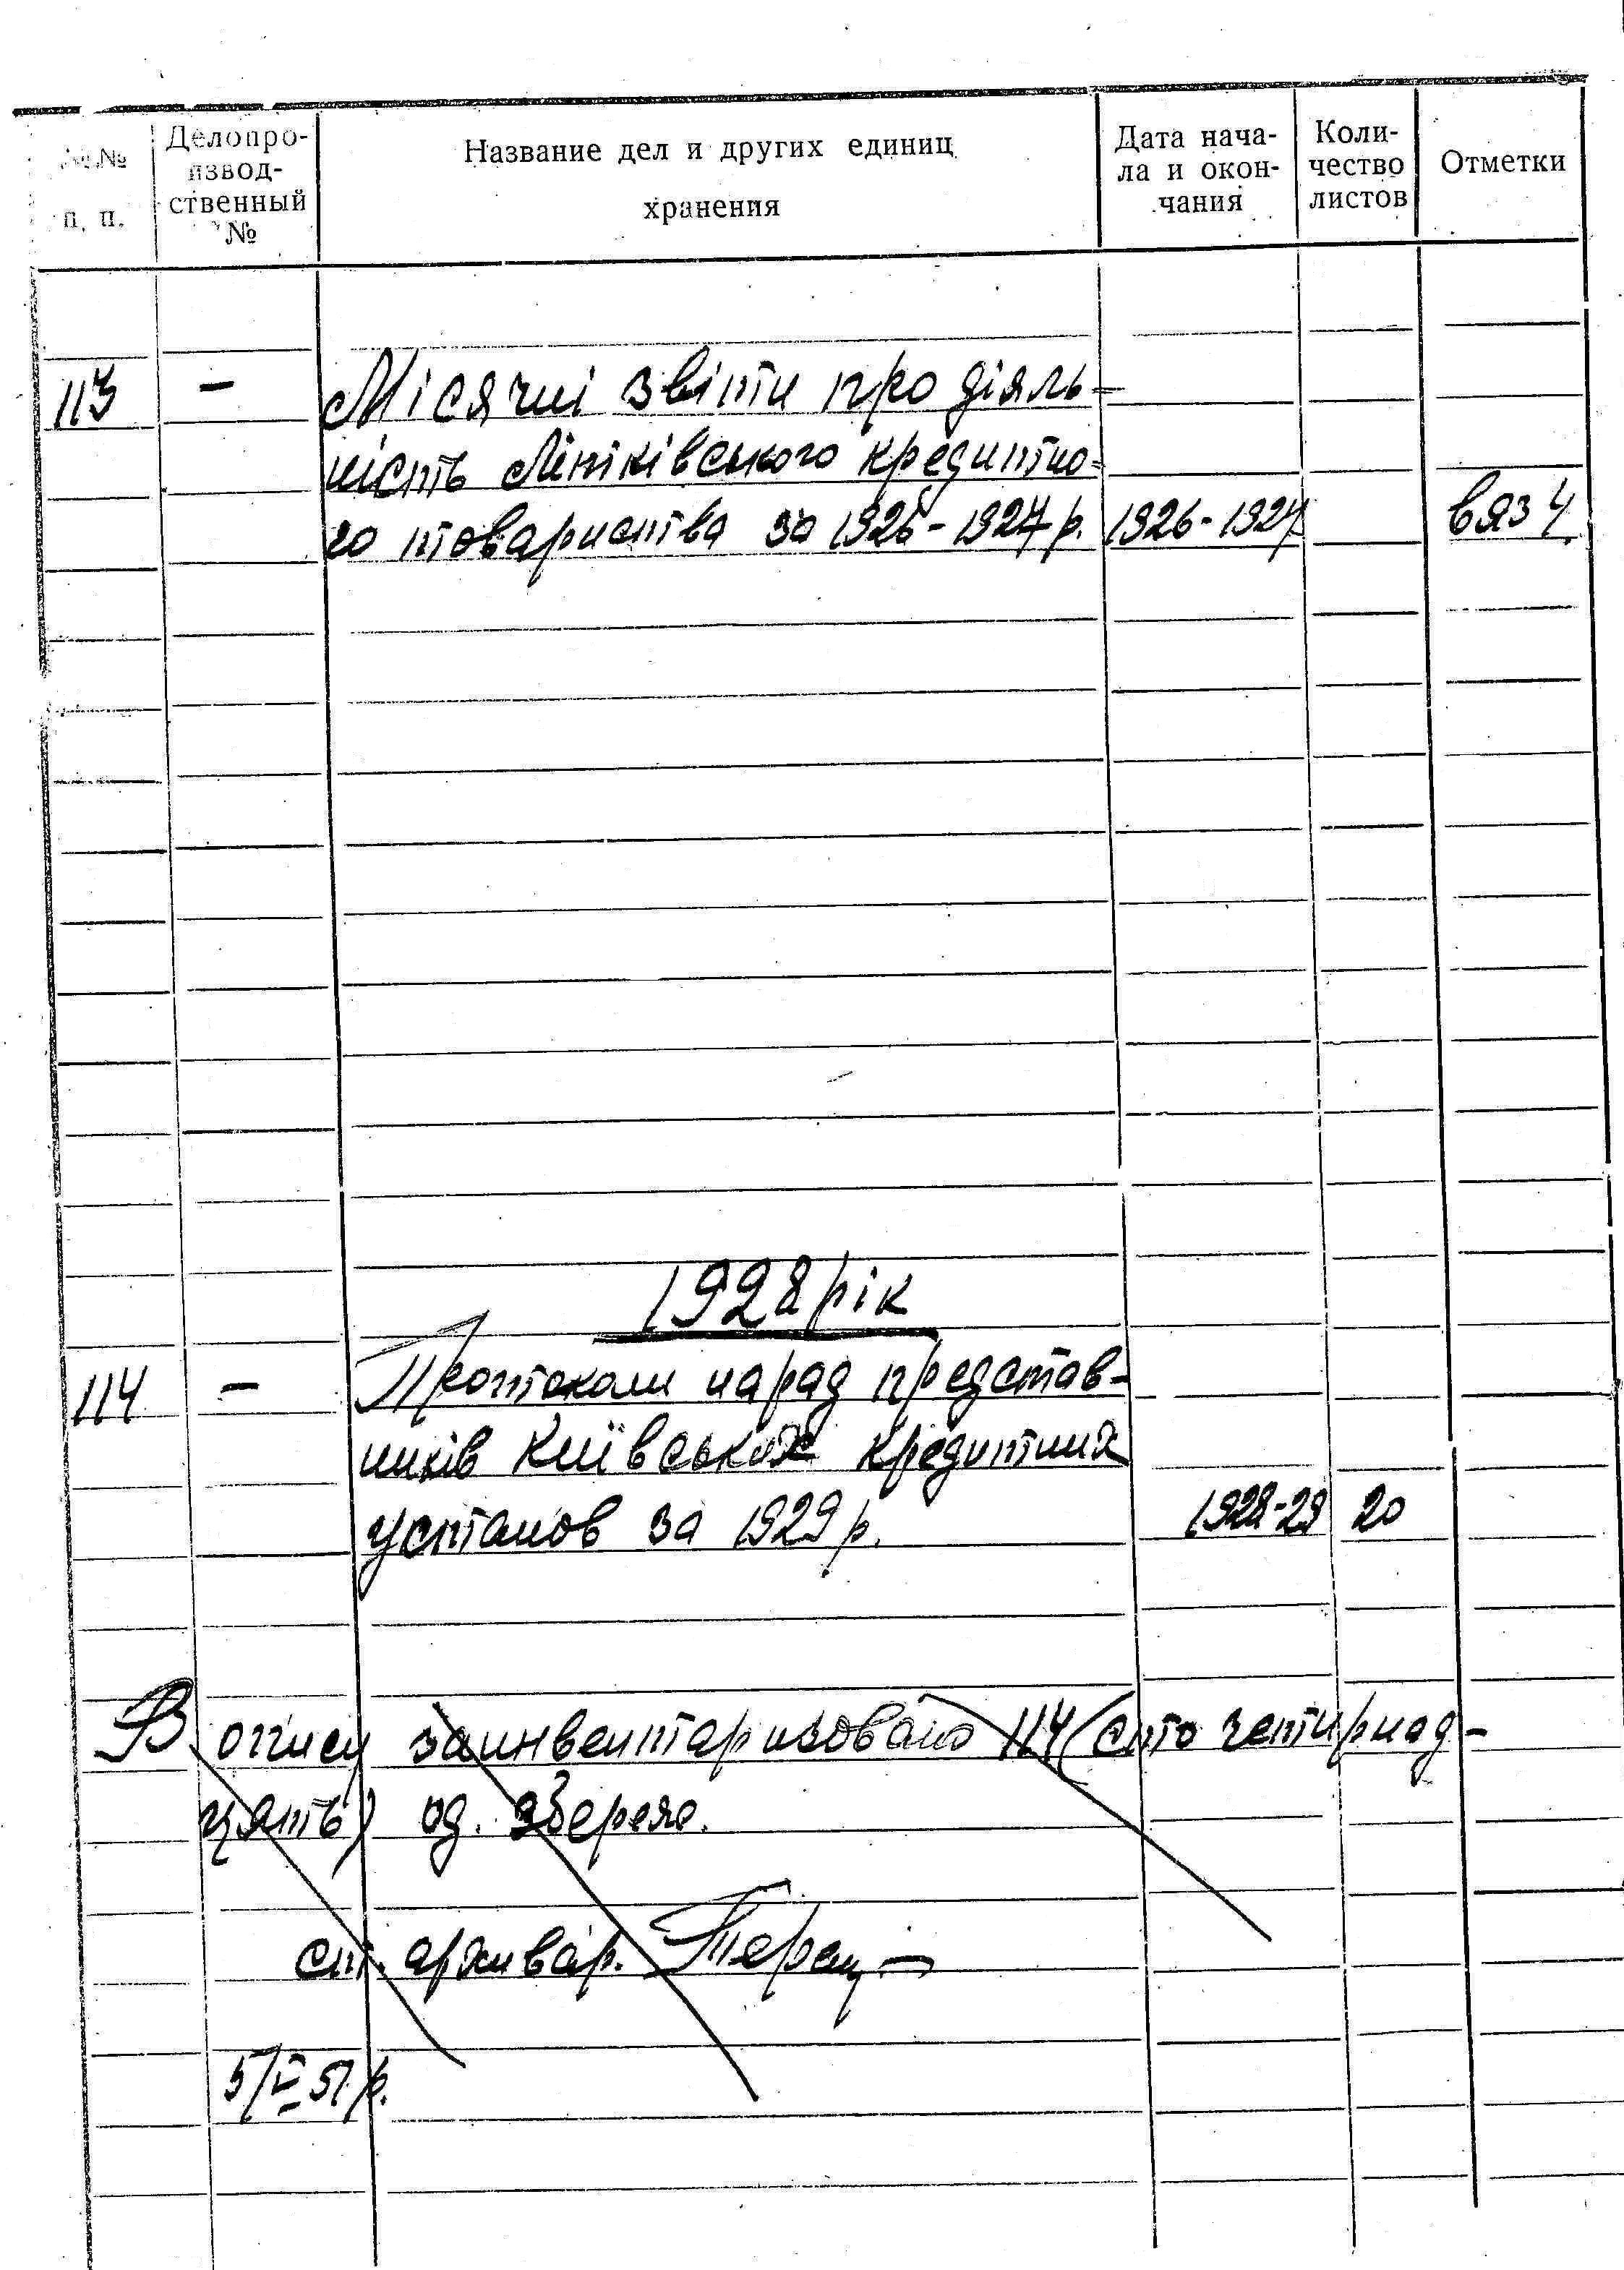 №№ п. п.
Делопро-
извод-
ственный
№
Название дел и других единиц
хранения
Дата нача-
ла и окон-
чания
Коли-
чество
листов
Отметки
113 – Місячні звіти про діяль-
ність Літківського кредитно-
го товариства за 1926-1927 р. 1926-1927 вяз 4.
1928 рік
114 – Протоколи нарад представ-
ників Київських кредитних
установ за 1929 р. 1928-29 20
В описи заинвентаризовано 114 (сто четирнад-
цять) од. збереж.
ст. архивар.
5/V 51 р.